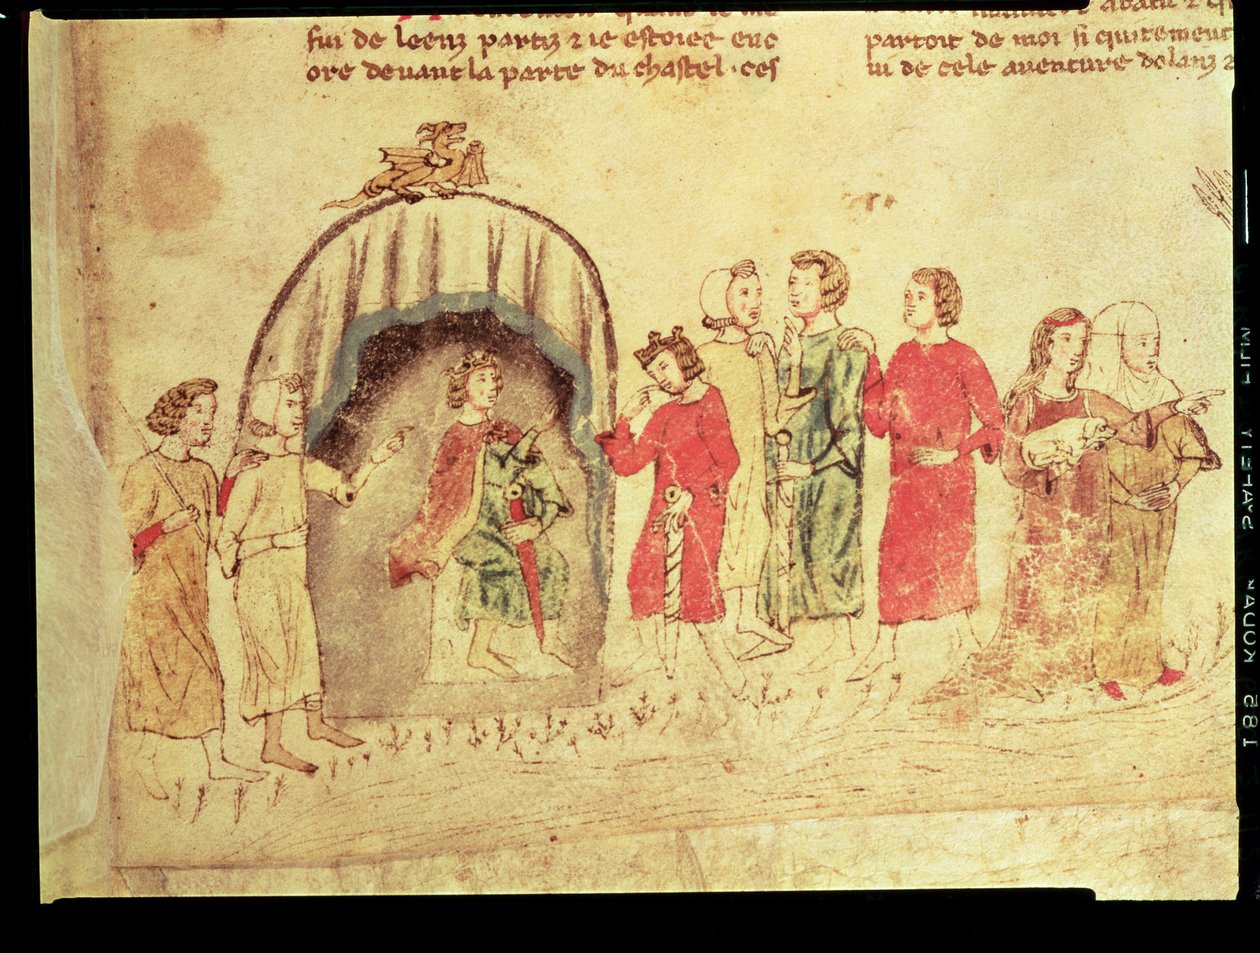 quant ie me
fui de leenz partiz ⁊ ie estoiee enc
ore deuant la parte du chastel · ces
abatu ⁊
partoit de moi si quitement
de cele auenture dolanz ⁊
KODAK SAFETY FILM